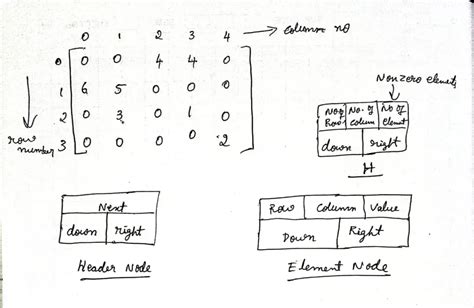 0 1 2 3 4 → column no
0 0 0 4 4 0
1 6 5 0 0 0
2 0 3 0 1 0
3 0 0 0 0 2
row
number
Nonzero elements
No of Row No. of column No of Element
down right
H
Next
down right
Header Node
Row Column Value
Down Right
Element Node